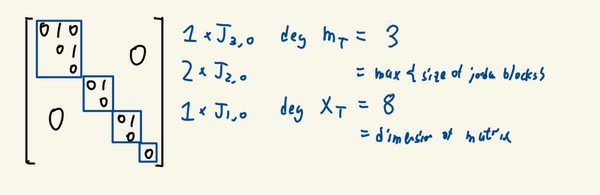 0 1 0
0 1
0
0
0 1
0
0
0 1
0
0
1 × J₃,₀ deg m_T = 3
2 × J₂,₀ = max { size of jordan blocks }
1 × J₁,₀ deg X_T = 8
= dimension of matrix